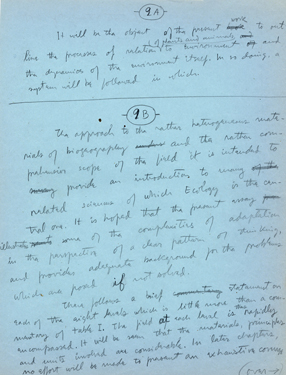 9A
It will be the object of the present work to out
line the processes of relation to environment and
of plants and animals
the dynamics of the environment itself. In so doing, a
system will be followed in which
9B
The approach to the rather heterogeneous mate-
rials of biogeography and the rather com-
prehensive scope of the field it is intended to
provide an introduction to many
related sciences of which Ecology is the cen-
tral one. It is hoped that the present essay
some of the complexities of adaptation
in the perspective of a clear pattern of thinking,
and provides adequate background for the problems
which are posed if not solved.
There follows a brief statement on
each of the eight levels which is little more than a com-
mentary of table I. The field at each level is rapidly
encompassed. It will be seen that the materials, principles
and units involved are considerable. In later chapters,
no effort will be made to present an exhaustive